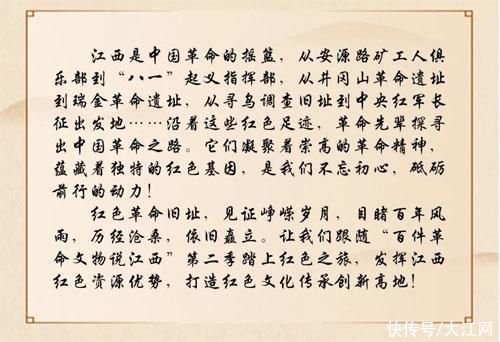 江西是中国革命的摇篮，从安源路矿工人俱
乐部到“八一”起义指挥部，从井冈山革命遗址
到瑞金革命遗址，从寻乌调查旧址到中央红军长
征出发地……沿着这些红色足迹，革命先辈探寻
出中国革命之路。它们凝聚着崇高的革命精神，
蕴藏着独特的红色基因，是我们不忘初心，砥砺
前行的动力！
红色革命旧址，见证峥嵘岁月，目睹百年风
雨，历经沧桑，依旧矗立。让我们跟随“百件革
命文物说江西”第二季踏上红色之旅，发挥江西
红色资源优势，打造红色文化传承创新高地！
快传号/大江网